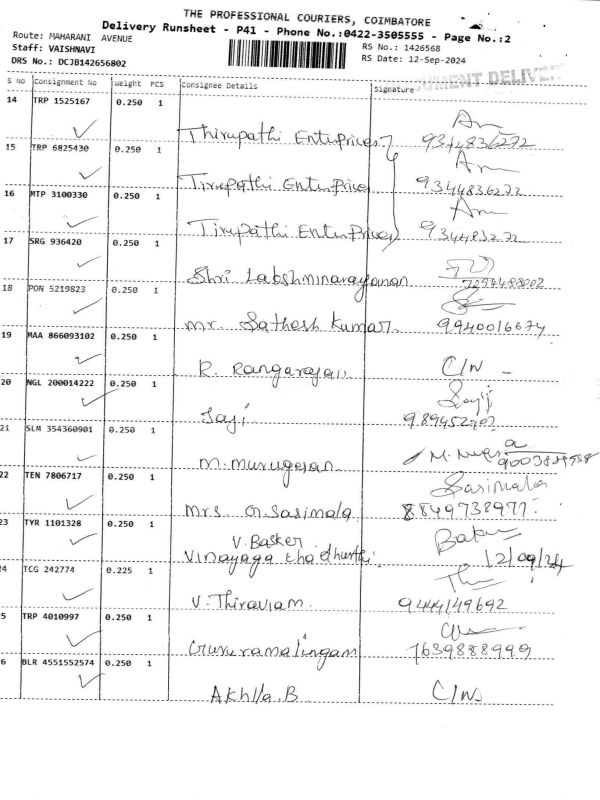 THE PROFESSIONAL COURIERS, COIMBATORE
Delivery Runsheet - P41 - Phone No.:0422-3505555 - Page No.:2
Route: MAHARANI AVENUE
RS No.: 1426568
Staff: VAISHNAVI
RS Date: 12-Sep-2024
DRS No.: DCJB142656802
S No Consignment No Weight PCS Consignee Details Signature
14 TRP 1525167 0.250 1
Thirupathi Enterprices 9344836272
15 TRP 6825430 0.250 1
Tirupathi Enterprices 9344836272
16 MTP 3100330 0.250 1
Tirupathi Enterprices
17 SRG 936420 0.250 1
Shri Lakshminarayanan
18 PON 5219823 0.250 1
Mr. Sathesh Kumar 9940016674
19 MAA 866093102 0.250 1
R. Rangarajan C/N
20 NGL 200014222 0.250 1
Saji
21 SLM 354360901 0.250 1
M. Murugesan
22 TEN 7806717 0.250 1
Mrs Sasimala Sasimala
8849738971
23 TYR 1101328 0.250 1
V. Basker
Vinayaga 12/09/24
24 TCG 242774 0.225 1
V. Thiraviam 9444149692
5 TRP 4010997 0.250 1
Gururamalingam 7639888999
6 BLR 4551552574 0.250 1
Akhila.B C/N